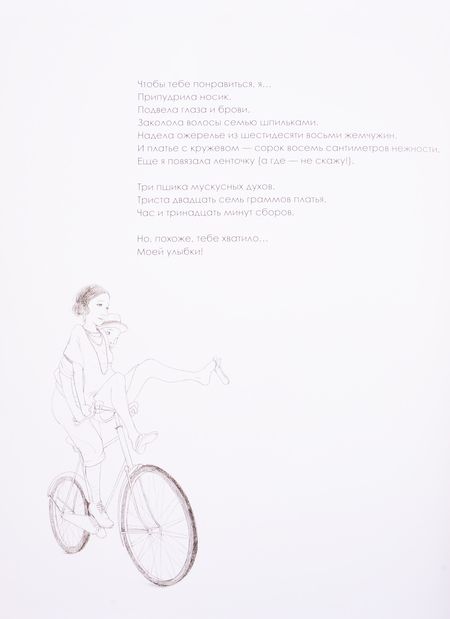 Чтобы тебе понравиться, я...
Припудрила носик.
Подвела глаза и брови.
Заколола волосы семью шпильками.
Надела ожерелье из шестидесяти восьми жемчужин.
И платье с кружевом — сорок восемь сантиметров нежности.
Ещё я повязала ленточку (а где — не скажу!).
Три пшика мускусных духов.
Триста двадцать семь граммов платья.
Час и тринадцать минут сборов.
Но, похоже, тебе хватило...
Моей улыбки!